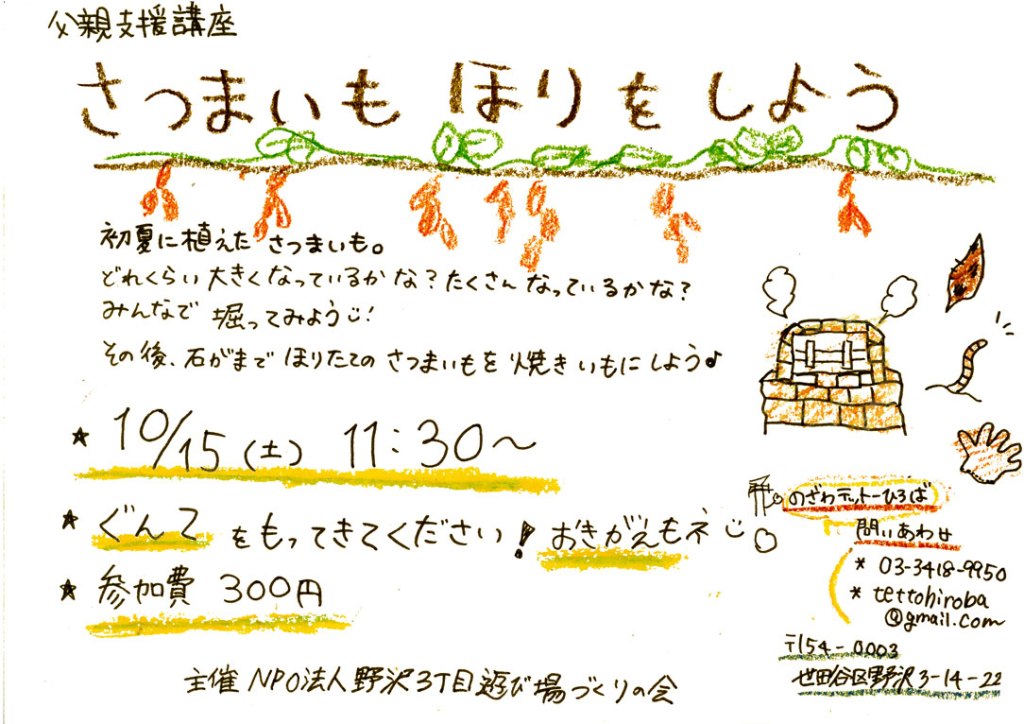 父親支援講座
さつまいもほりをしよう
初夏に植えた さつまいも。
どれくらい大きくなっているかな?たくさんなっているかな?
みんなで 掘ってみよう!
その後、石がまで ほりたての さつまいもを 焼きいもにしよう♪
★ 10/15(土) 11:30〜
★ ぐんてをもってきてください!おきがえもネ
★ 参加費 300円
のざわテットーひろば
問いあわせ
* 03-3418-9950
* tettohiroba
@gmail.com
〒154-0003
世田谷区野沢3-14-22
主催 NPO法人野沢3丁目遊び場づくりの会